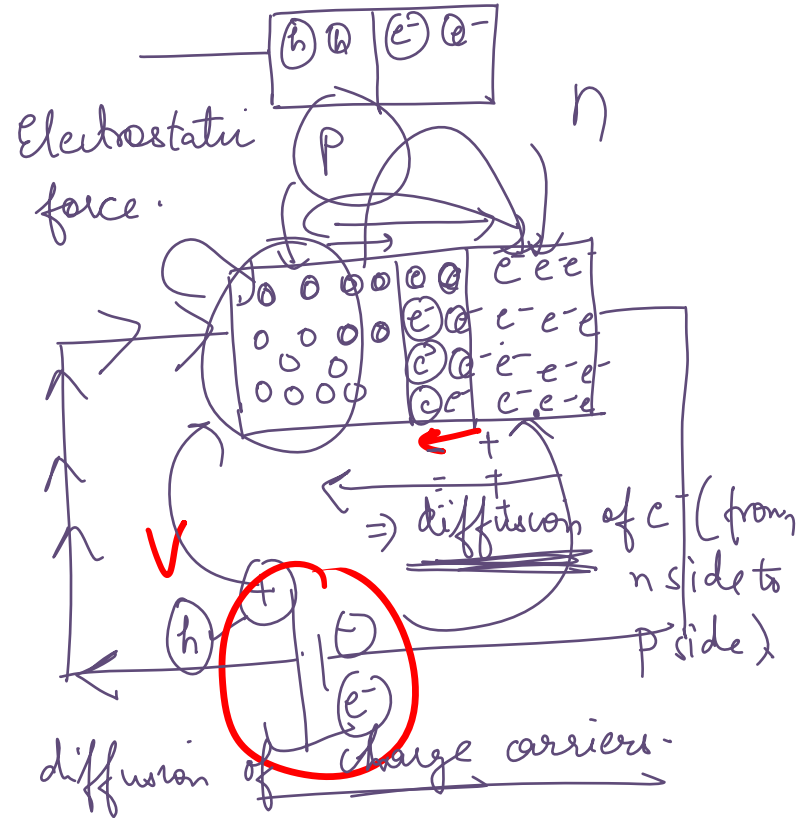 h h e⁻ e⁻
n
Electrostatic
P
force.
e⁻ e⁻ e⁻
e⁻ e⁻ e⁻ e⁻ e
e⁻ e⁻ e⁻ e⁻ e⁻
e e⁻ e⁻ e⁻ e
+
- +
⇒ diffusion of e⁻ (from
n side to
p side)
+
h -
e⁻
diffusion of charge carriers.